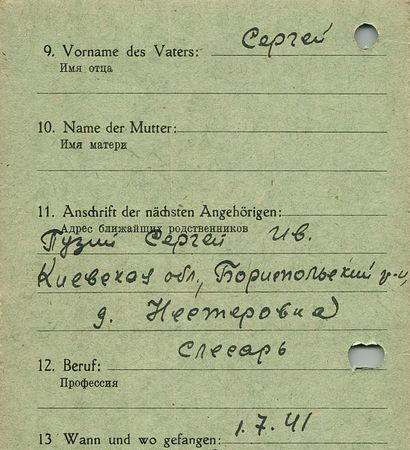 9. Vorname des Vaters: Сергей
Имя отца
10. Name der Mutter:
Имя матери
11. Anschrift der nächsten Angehörigen:
Адрес ближайших родственников
Пузий Сергей Ив.
Киевская обл., Бориспольский р-н,
д. Нестеровка)
слесарь
12. Beruf:
Профессия
13 Wann und wo gefangen: 1.7.41